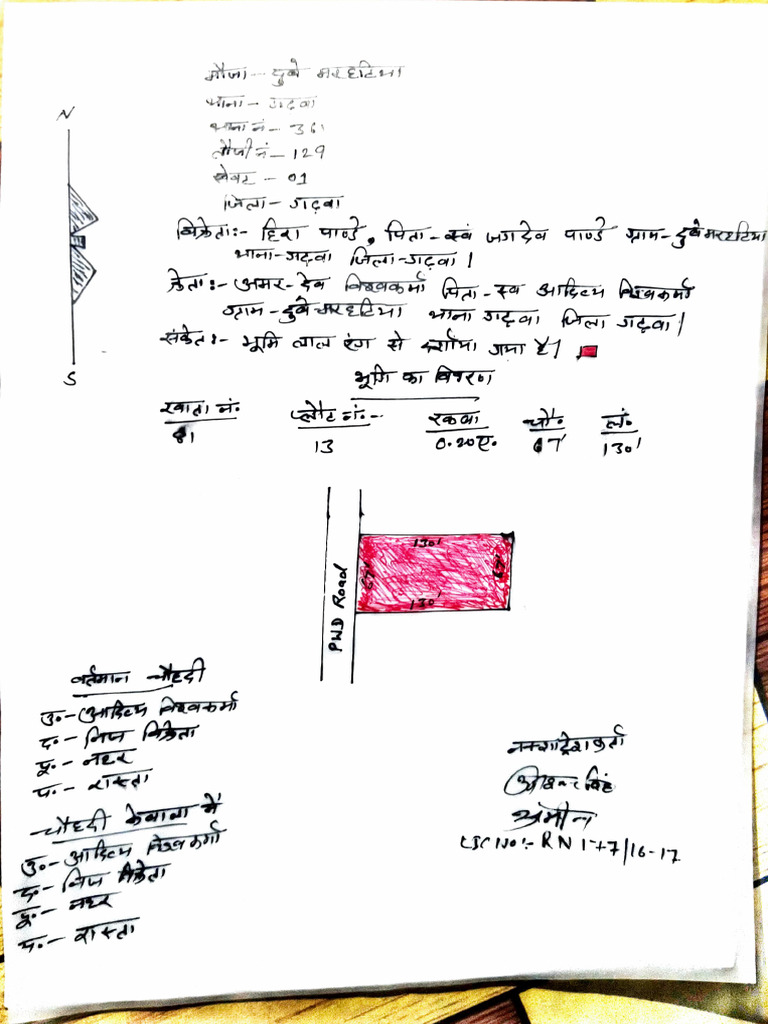 N
मौजा - दुबे मरहटिया
थाना - गढ़वा
थाना नं - 361
तौजी नं - 129
खेवट - 01
जिला - गढ़वा
विक्रेता:- हिरा पाण्डे, पिता - स्वं जगदेव पाण्डे ग्राम - दुबे मरहटिया
थाना - गढ़वा जिला - गढ़वा।
क्रेता:- अमर - देव विश्वकर्मा पिता - स्व आदित्य विश्वकर्मा
ग्राम - दुबे मरहटिया थाना गढ़वा जिला गढ़वा।
संकेत:- भूमि लाल रंग से दर्शाया गया है।
S
भूमि का विवरण
खाता नं. प्लौट नं.- रकबा चौ. लं.
81 13 0.20ए. 67' 130'
130'
67' 67'
130'
PWD Road
वर्तमान चौहदी
उ.- आदित्य विश्वकर्मा
द.- निज विक्रेता
पू.- नहर
प.- रास्ता
चौहदी केवाला में
उ.- आदित्य विश्वकर्मा
द.- निज विक्रेता
पू.- नहर
प.- रास्ता
सिंह
अमीन
RN 147/16-17